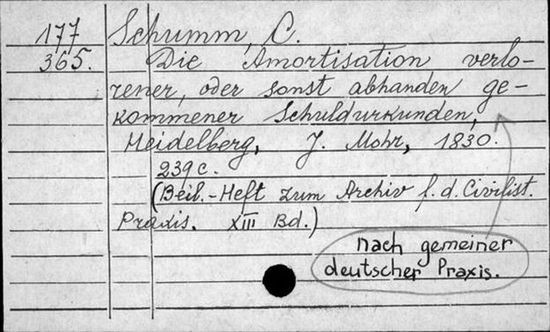 177 Schumm, C.
365. Die Amortisation verlo-
rener, oder sonst abhanden ge-
kommener Schuldurkunden,
Heidelberg, J. Mohr, 1830.
239 c.
(Beil.-Heft zum Archiv f. d. Civilist.
Praxis. XIII Bd.)
nach gemeiner
deutscher Praxis.